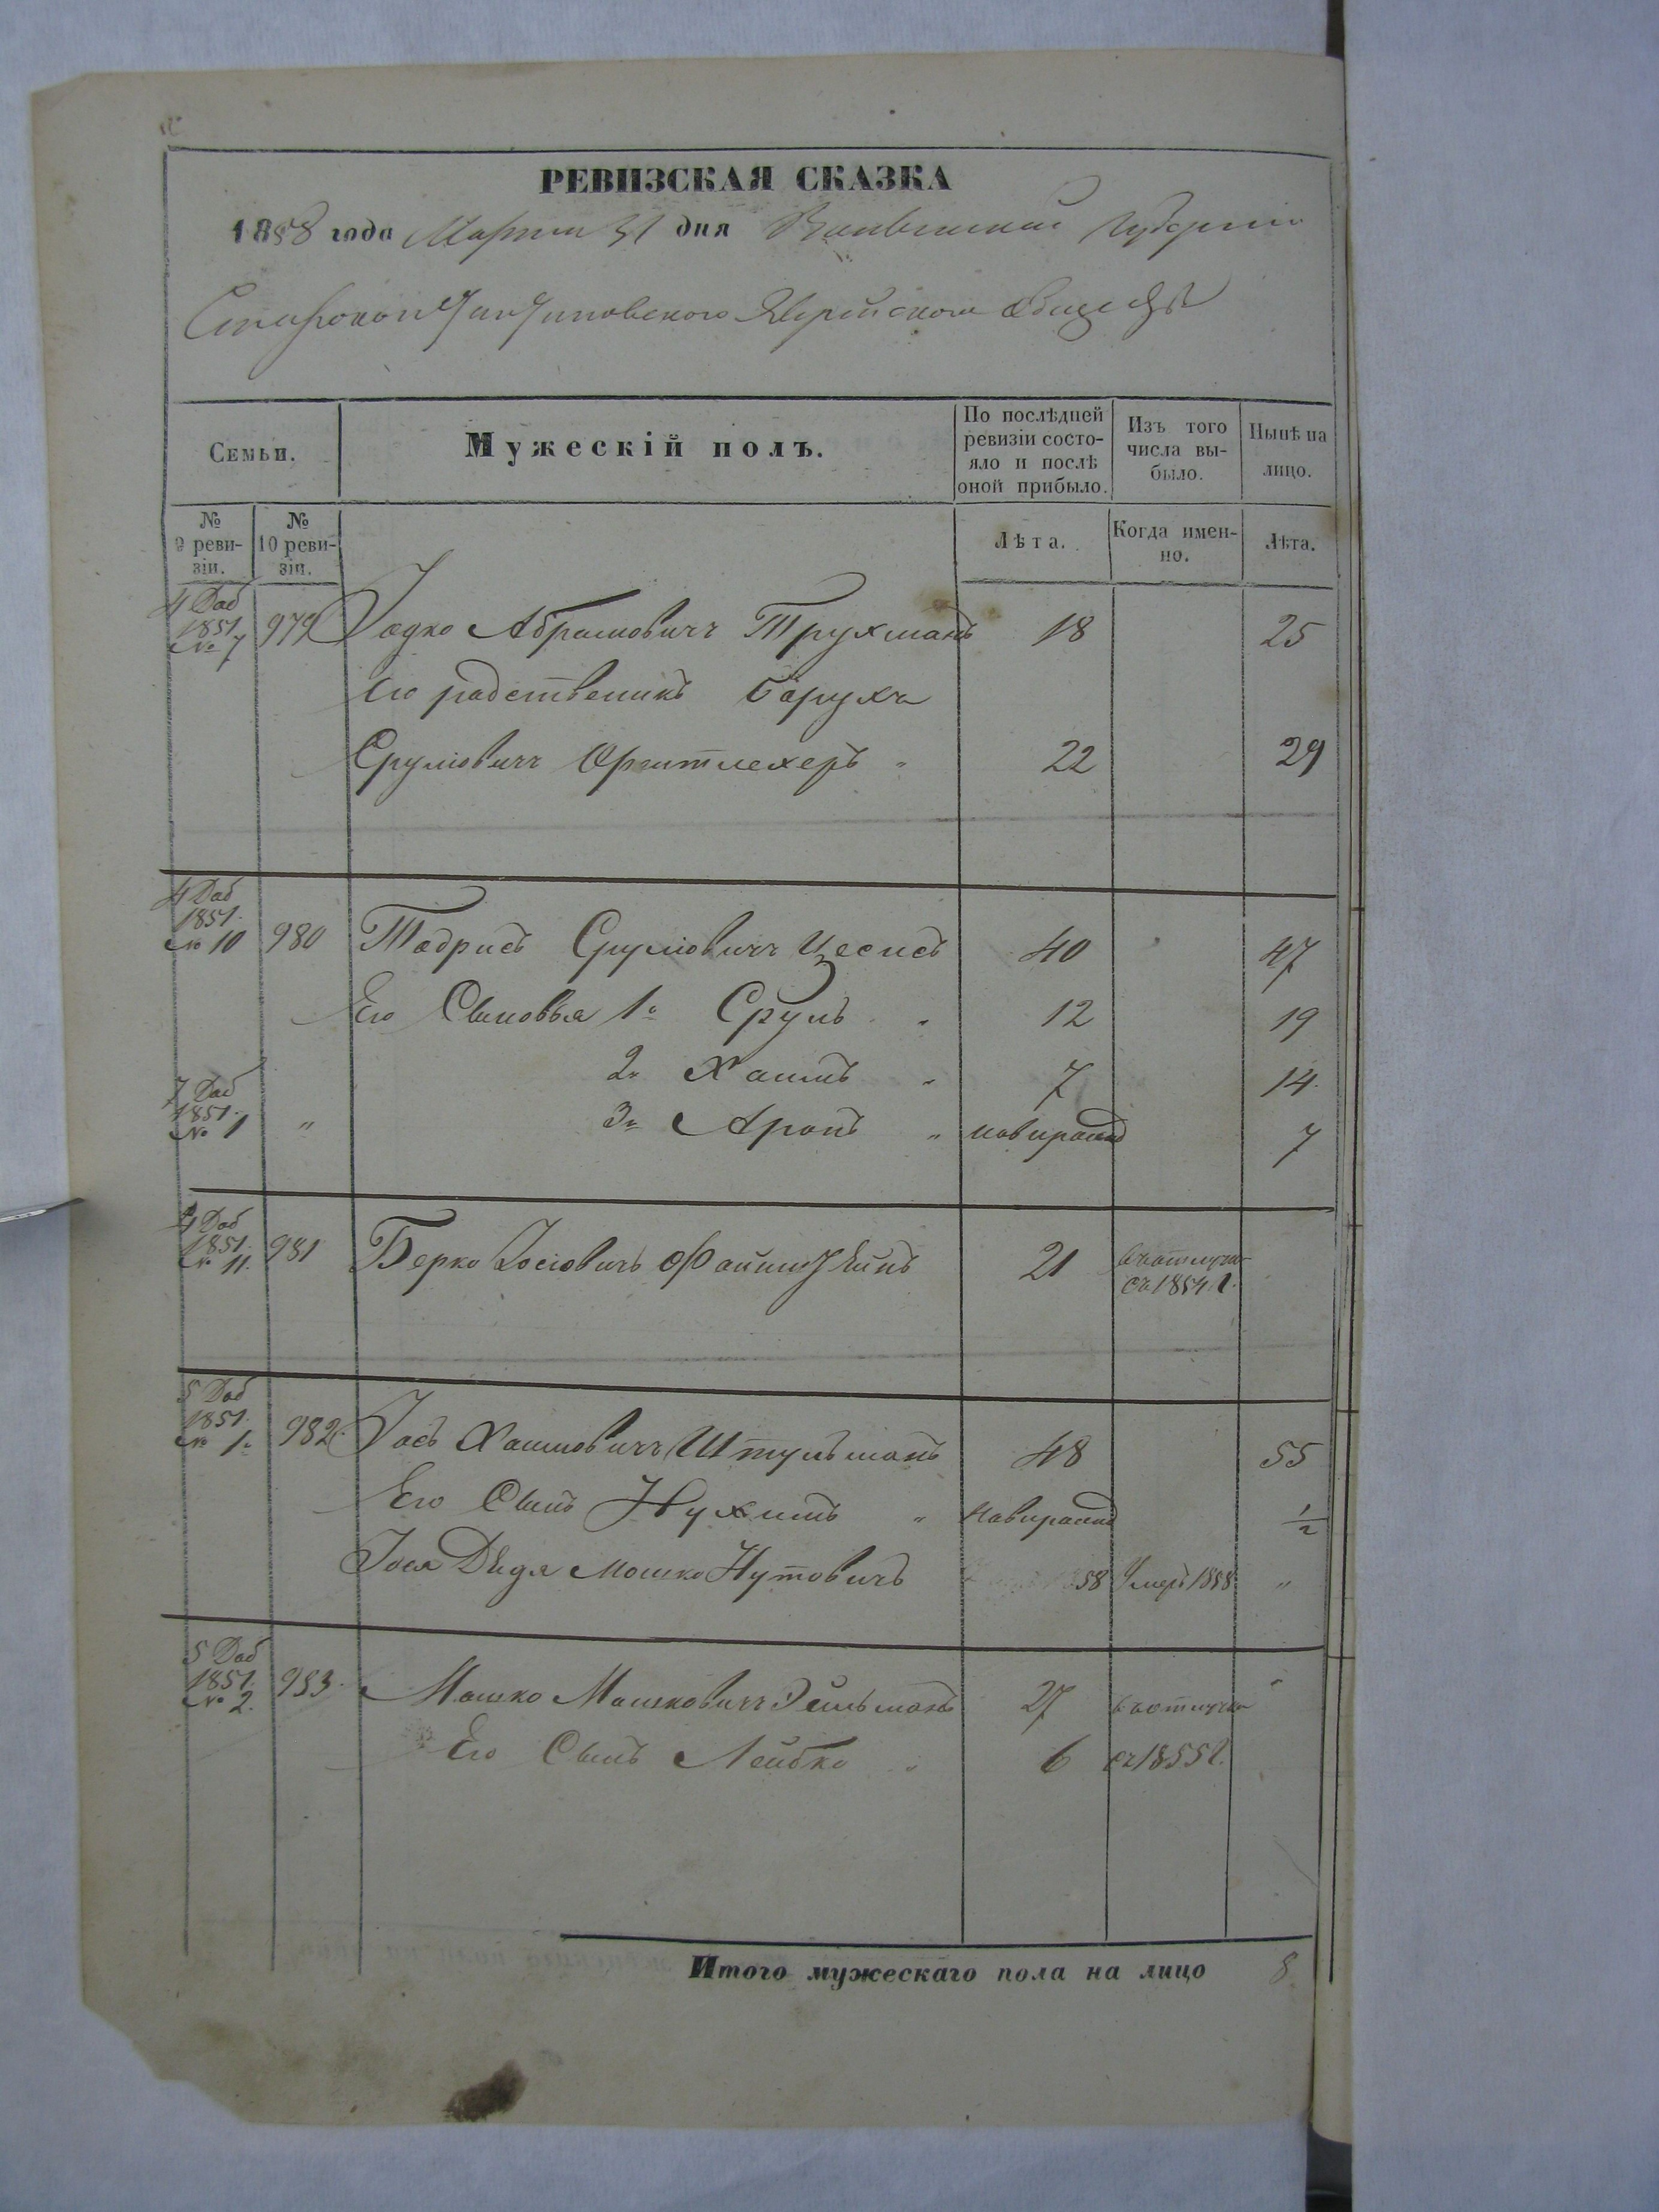 РЕВИЗСКАЯ СКАЗКА
1858 года Марта 31 дня Волынской Губернии
Староконстантиновского Еврейского общества
Семьи.
Мужескій полъ.
По послѣдней ревизіи состояло и послѣ оной прибыло.
Изъ того числа выбыло.
Нынѣ на лицо.
№ 9 ревизіи.
№ 10 ревизіи.
Лѣта.
Когда именно.
Лѣта.
4 Доб 1851 № 7 979 Іодко Абрамовичъ Трухманъ 18 25
Его родственикъ Барухъ
Сруліовичъ 22 29
4 Доб 1851. № 10 980 Тодрисъ Сруліовичъ Цесисъ 40 47
Его Сыновья 1й Сруль 12 19
2й Хаимъ 7 14.
7 Доб 1851. № 1 " 3й Аронъ " новорожд 7
4 Доб 1851. № 11. 981 Берко Іосіовичъ 21 въ отлучке съ 1854. г.
5 Доб 1851. № 1. 982. Іосъ Хаимовичъ Штульманъ 48 55
Его Сынъ Нухимъ " новорожд 1/2
Іося Дядя Мошко Нутовичъ 58 Умеръ 1858 "
5 Доб 1851. № 2. 983. Мошко Мошковичъ 27 въ отлучке "
Его Сынъ Лейбко " 6 съ 1855 г.
Итого мужескаго пола на лицо 8